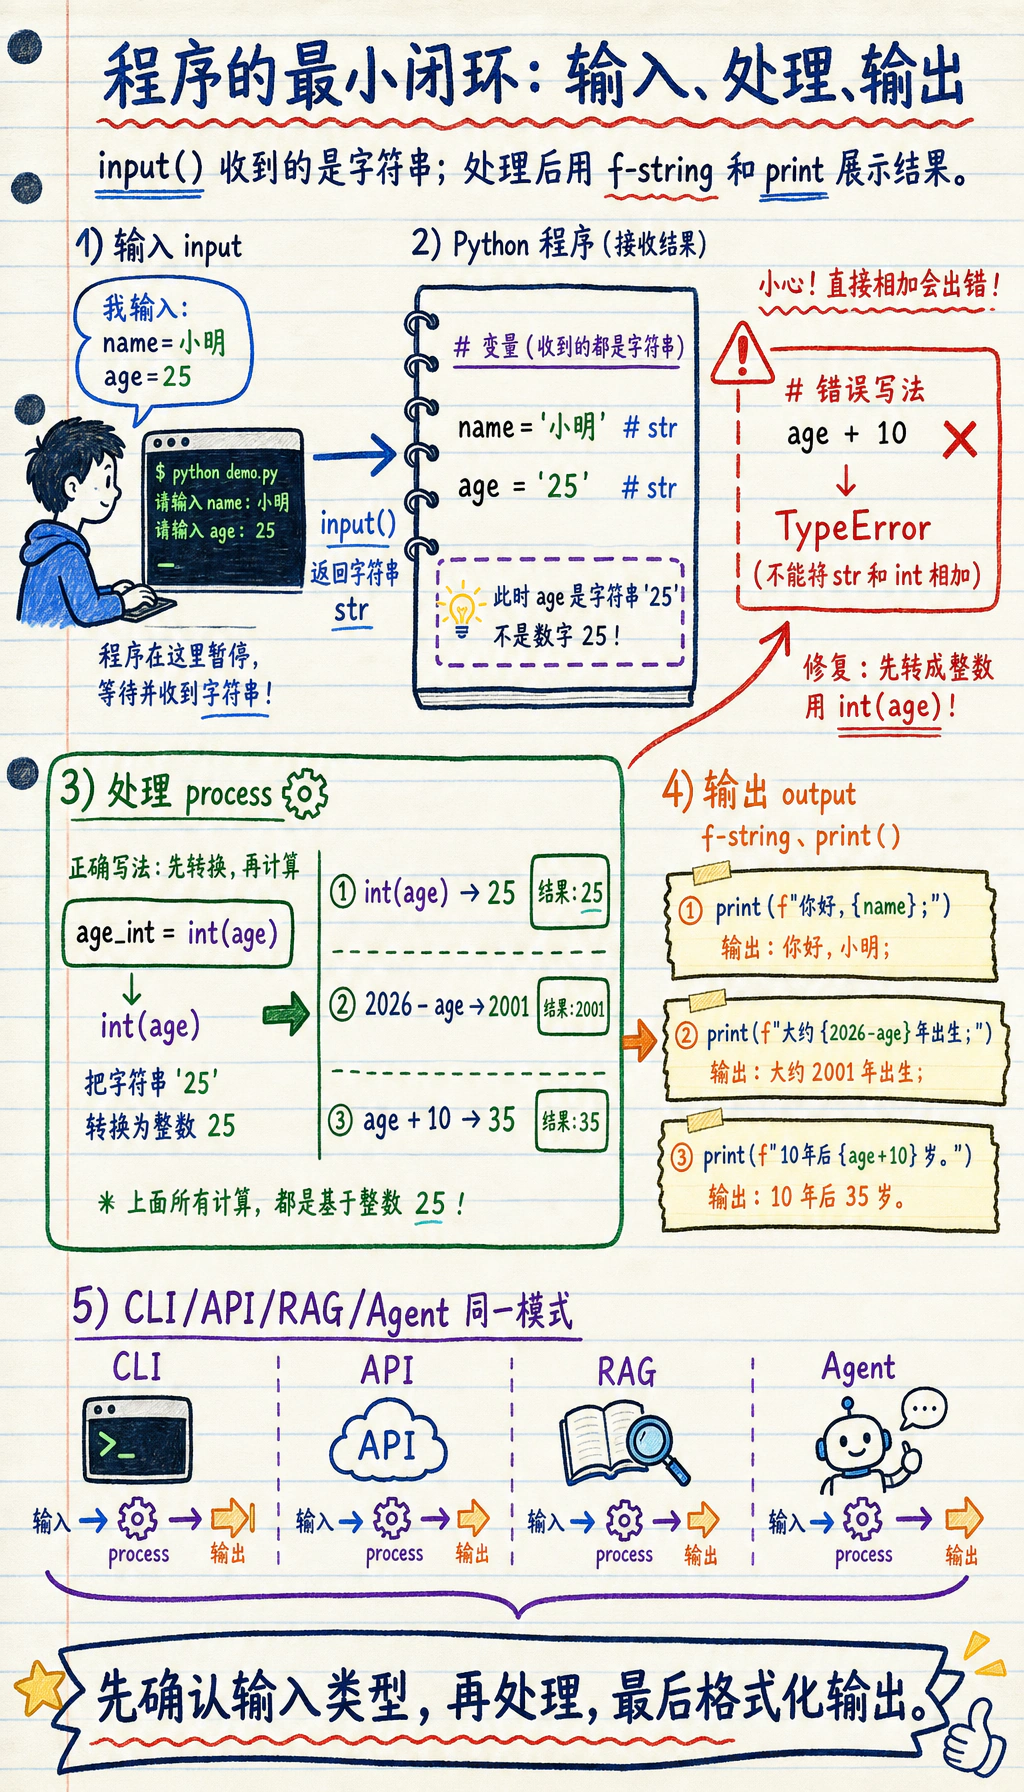 程序的最小闭环：输入、处理、输出
input() 收到的是字符串；处理后用 f-string 和 print 展示结果。
1) 输入 input
我输入：
name=小明
age=25
$ python demo.py
请输入 name：小明
请输入 age：25
程序在这里暂停，
等待并收到字符串！
input()
返回字符串
str
2) Python 程序（接收结果）
# 变量（收到的都是字符串）
name = '小明' # str
age = '25' # str
此时 age 是字符串 '25'
不是数字 25！
小心！直接相加会出错！
# 错误写法
age + 10
↓
TypeError
（不能将 str 和 int 相加）
修复：先转成整数
用 int(age)！
3) 处理 process
正确写法：先转换，再计算
age_int = int(age)
↓
int(age)
把字符串 '25'
转换为整数 25
① int(age) → 25 结果：25
② 2026 - age → 2001 结果：2001
③ age + 10 → 35 结果：35
* 上面所有计算，都是基于整数 25！
4) 输出 output
f-string、print()
① print(f"你好，{name}；")
输出：你好，小明；
② print(f"大约 {2026-age} 年出生；")
输出：大约 2001 年出生；
③ print(f"10年后 {age+10} 岁。")
输出：10 年后 35 岁。
5) CLI/API/RAG/Agent 同一模式
CLI
>_
输入 → → 输出
process
API
API
输入 → → 输出
process
RAG
输入 → → 输出
process
Agent
...
输入 → → 输出
process
先确认输入类型，再处理，最后格式化输出。